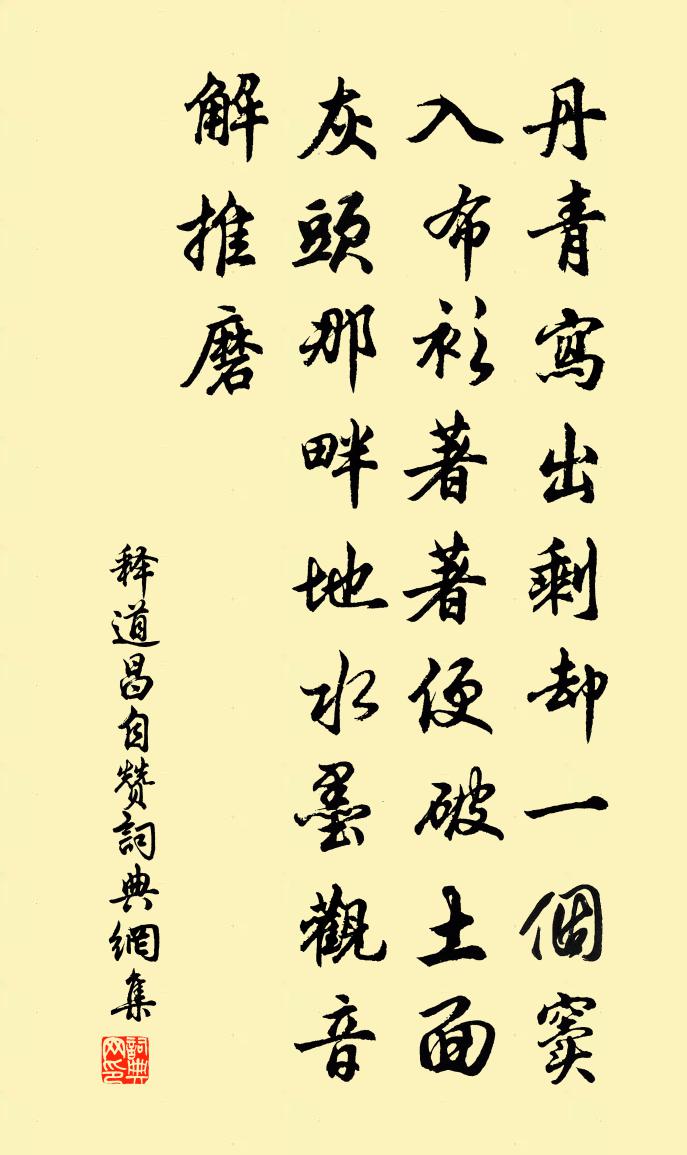 丹青寫出剩却一個窠
入布衫著著便破土面
灰頭那畔地水墨觀音
解推磨
释道昌自赞詞典網集
詞典网印